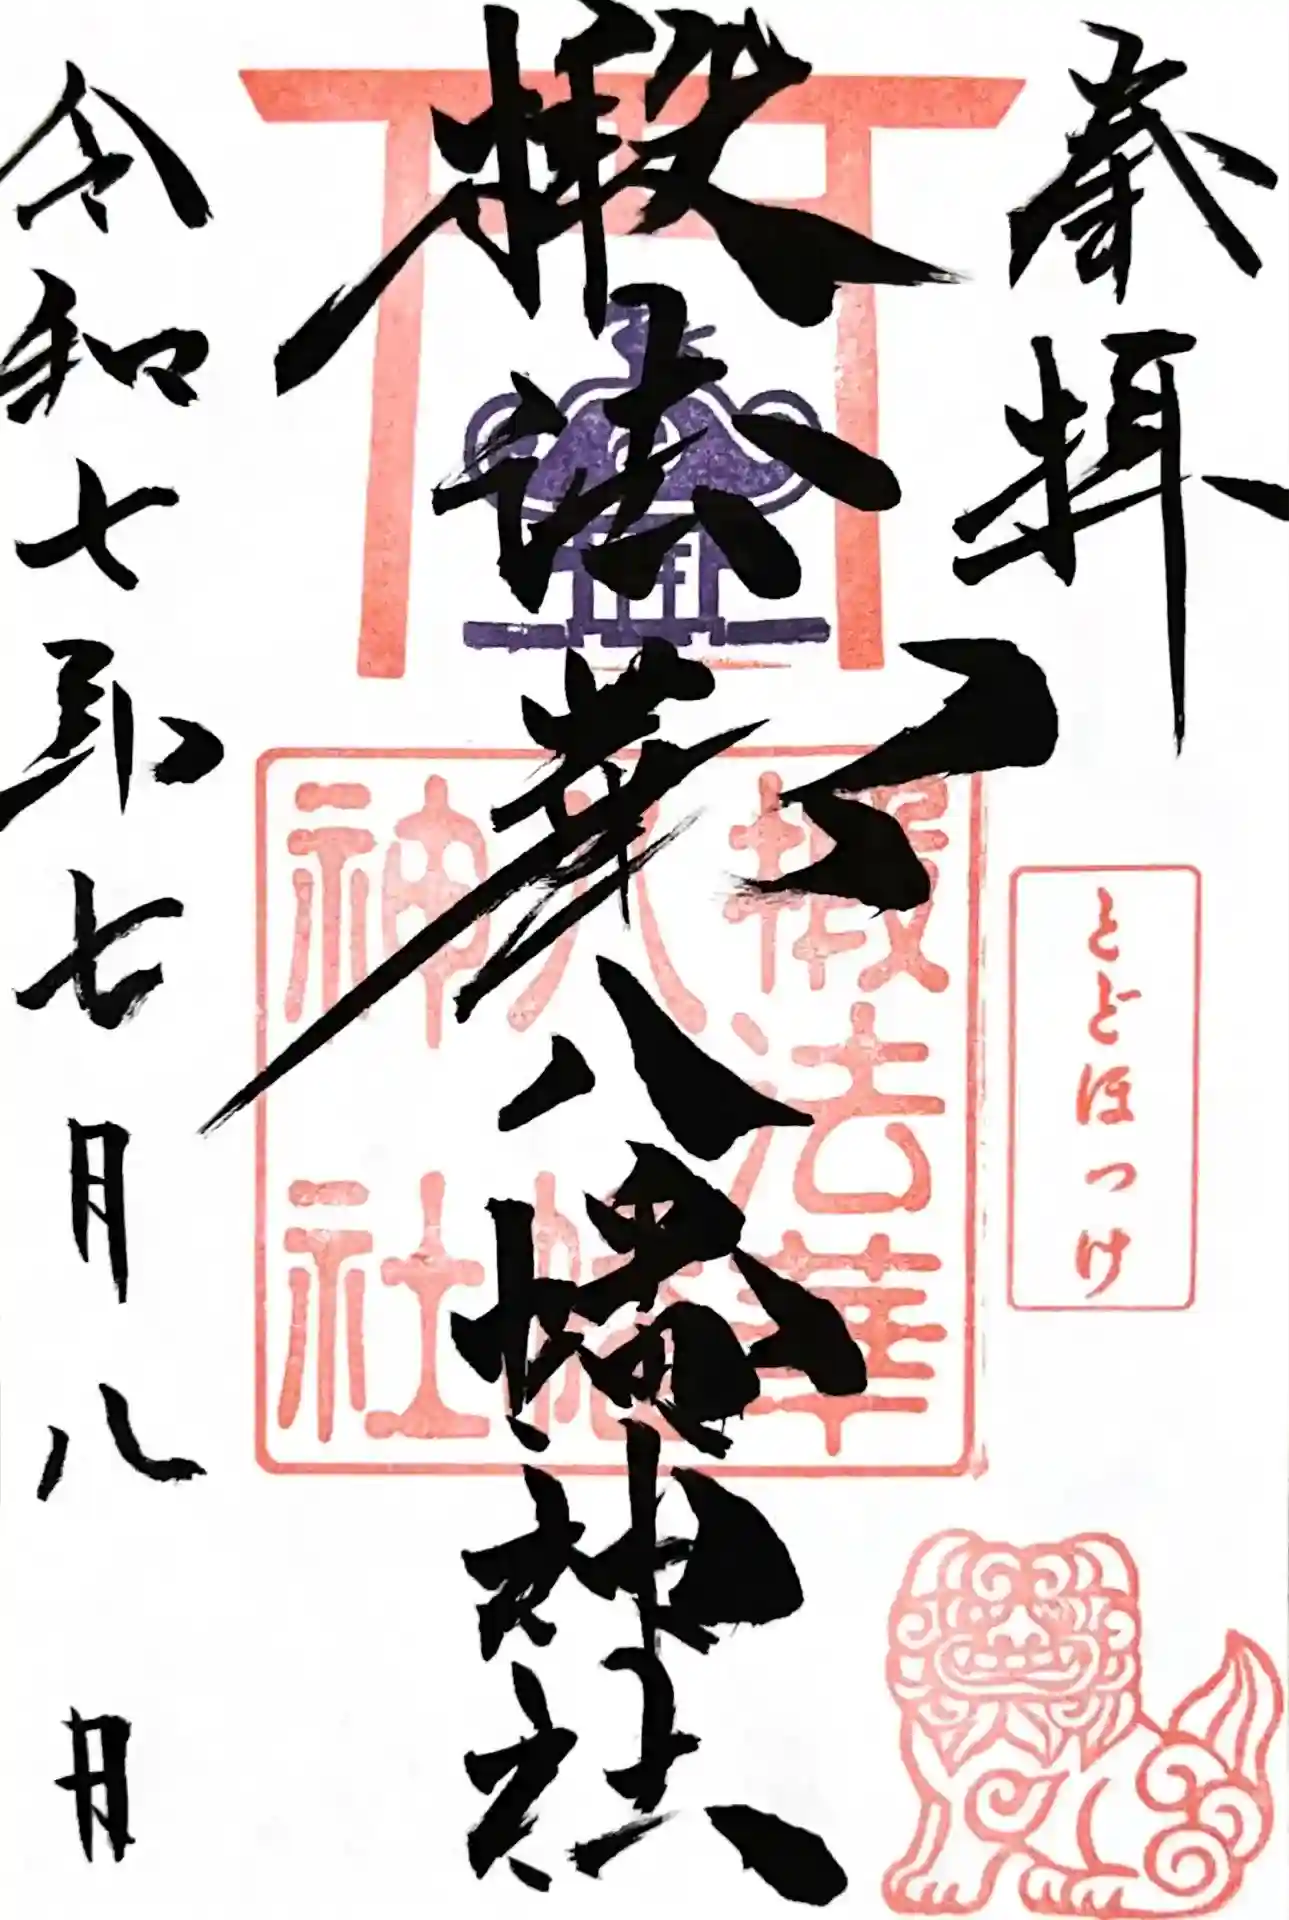 奉拝
とどほっけ
椴法華八幡神社
椴法華
八幡
神社
令和七年七月八日